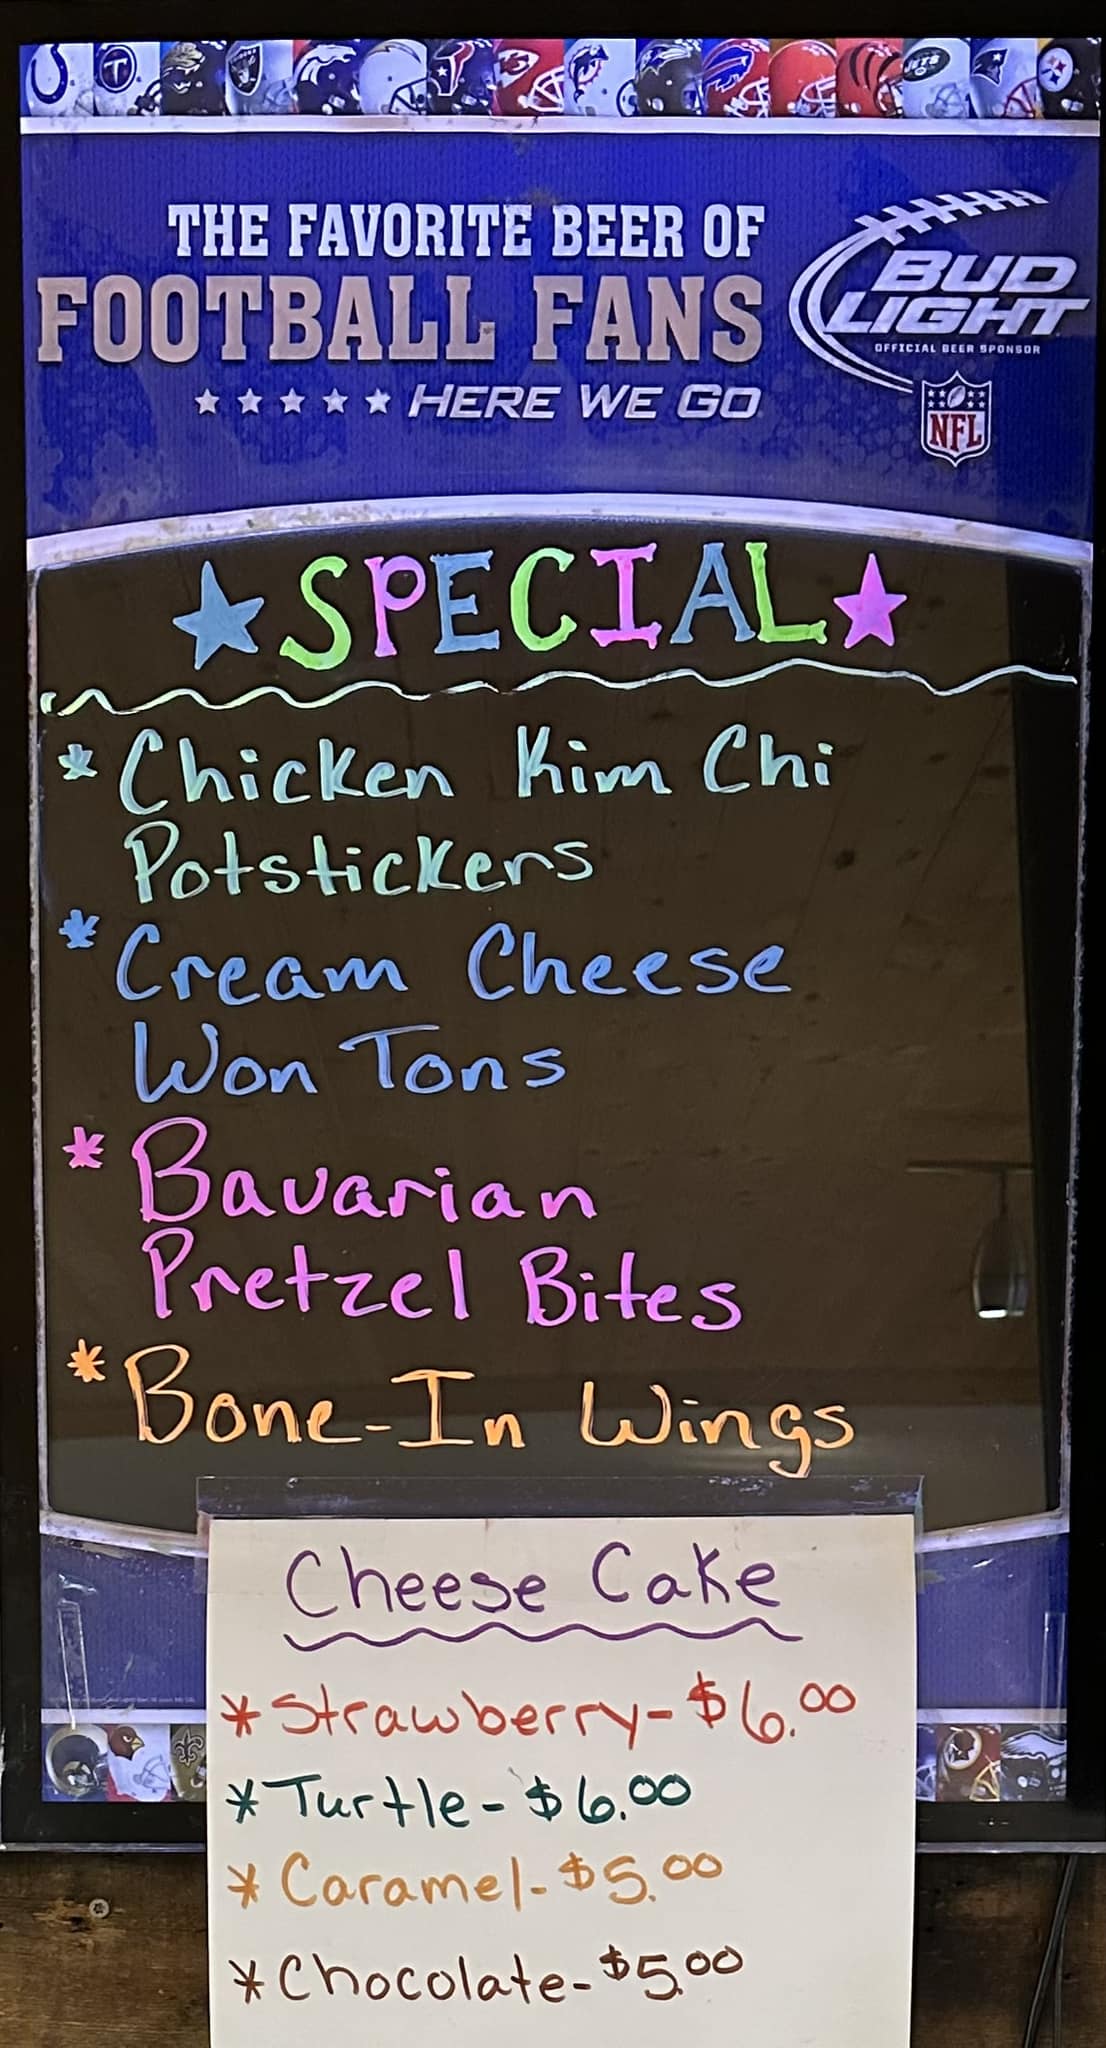 THE FAVORITE BEER OF
FOOTBALL FANS
HERE WE GO
BUD
LIGHT
OFFICIAL BEER SPONSOR
NFL
JETS
SPECIAL
* Chicken Kim Chi
Potstickers
* Cream Cheese
Won Tons
* Bavarian
Pretzel Bites
* Bone-In Wings
Cheese Cake
* Strawberry - $6.00
* Turtle - $6.00
* Caramel - $5.00
* Chocolate - $5.00